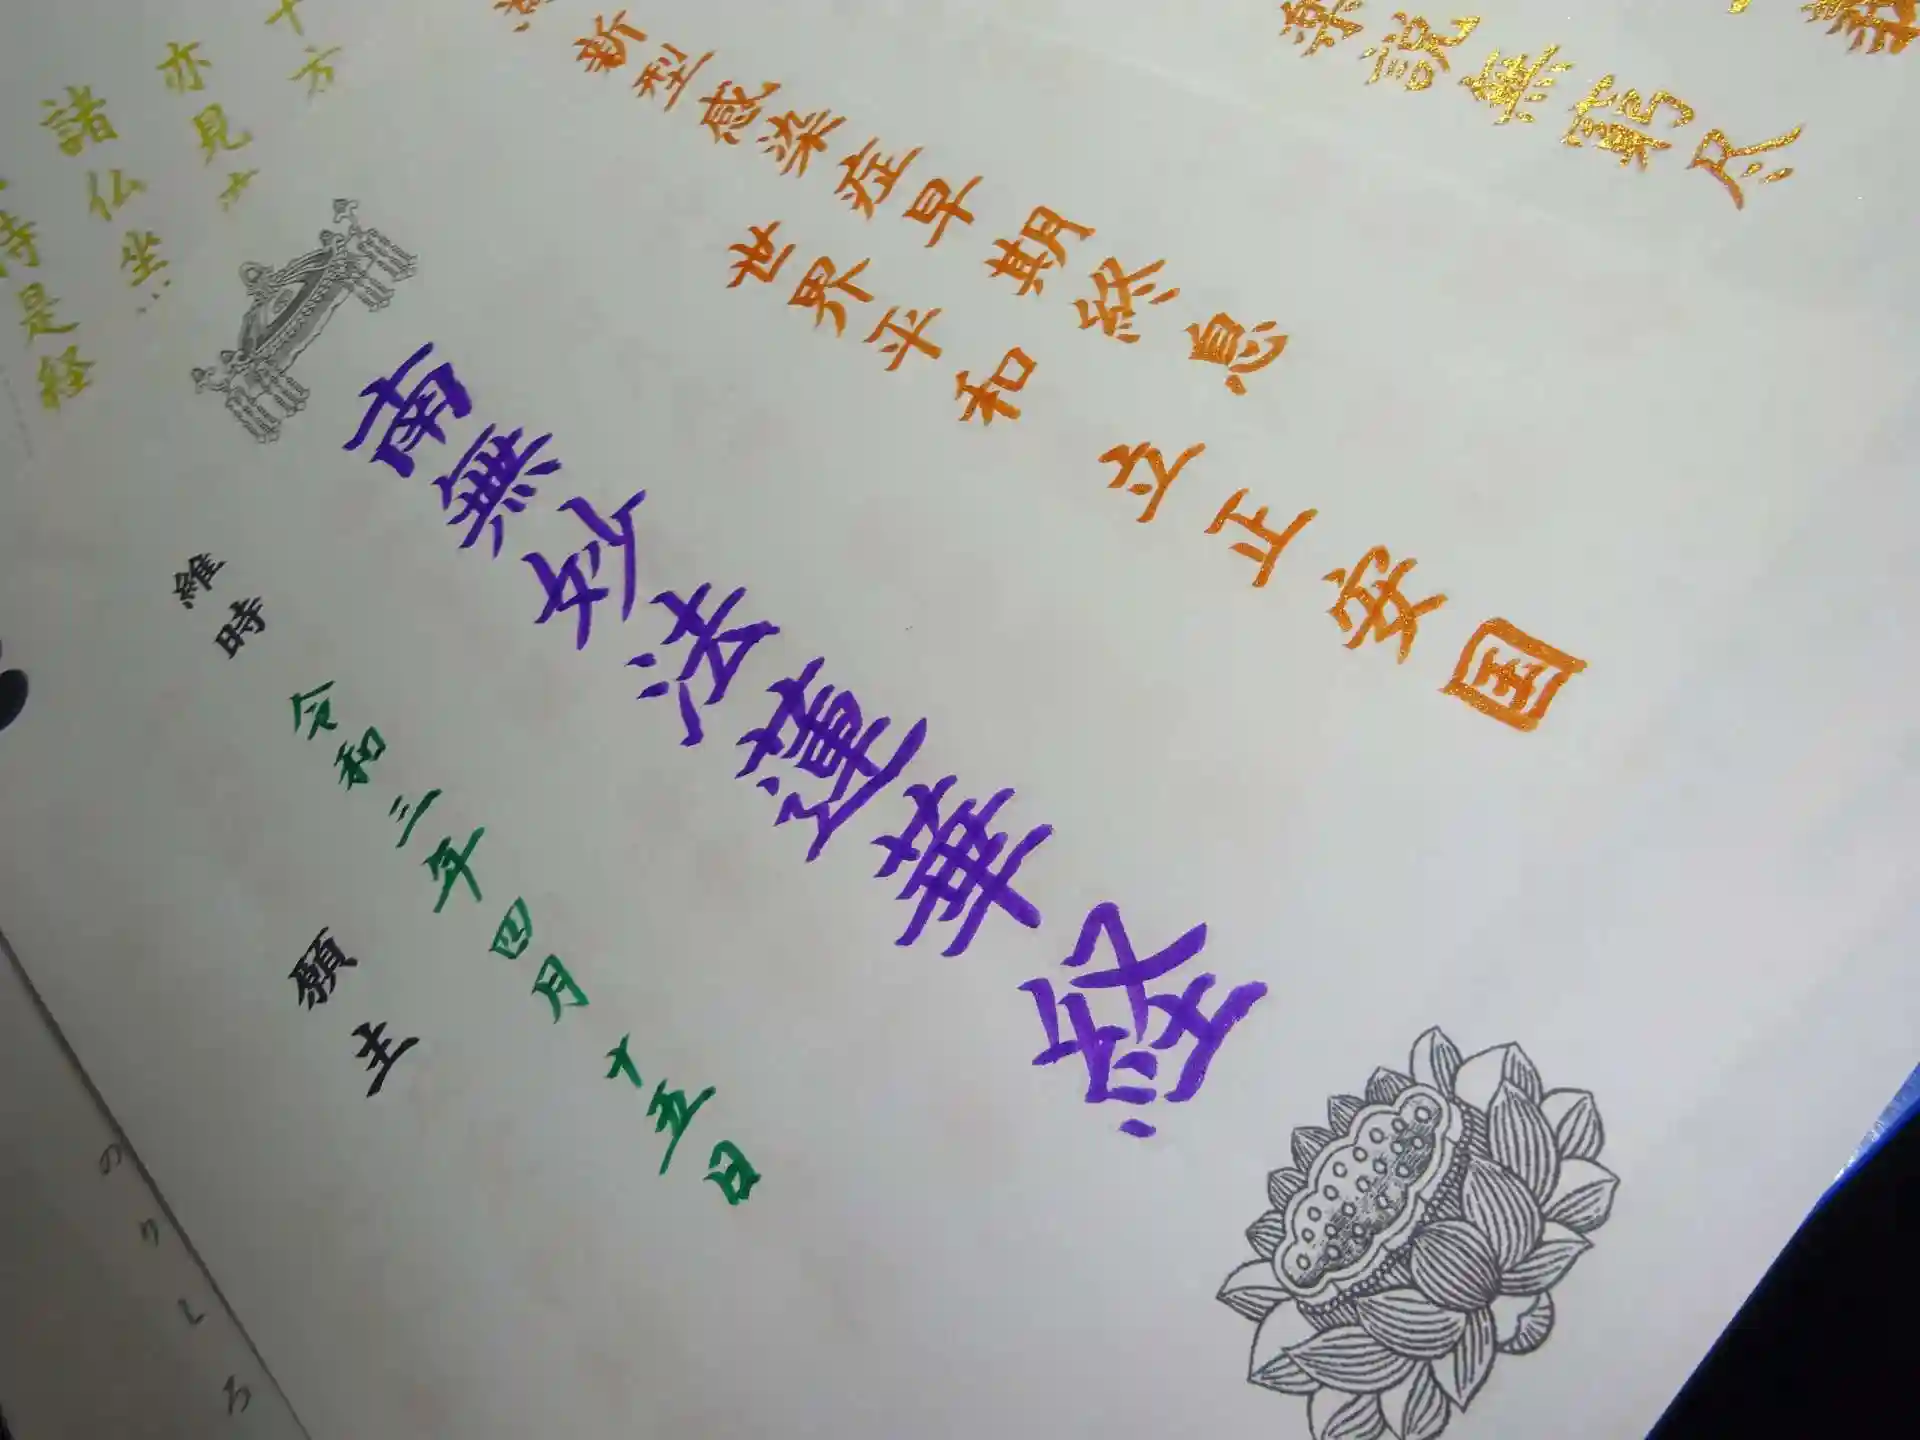 楽説無窮尽
新型感染症早期終息
世界平和 立正安国
南無妙法蓮華経
維時 令和三年四月十五日
願主
十方
亦見
諸仏坐
持是経
のりしろ